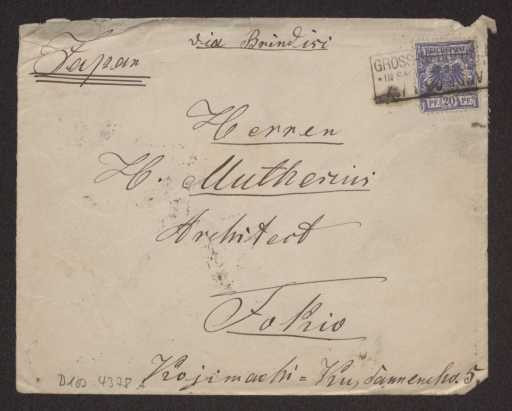 via Brindisi
Japan
REICHSPOST
GROSS
* IN SA
PF 20 PF
Herren
H. Muthesius
Architect
Tokio
Kojimachi = Ku, Sannencho. 5.
D100 - 4378